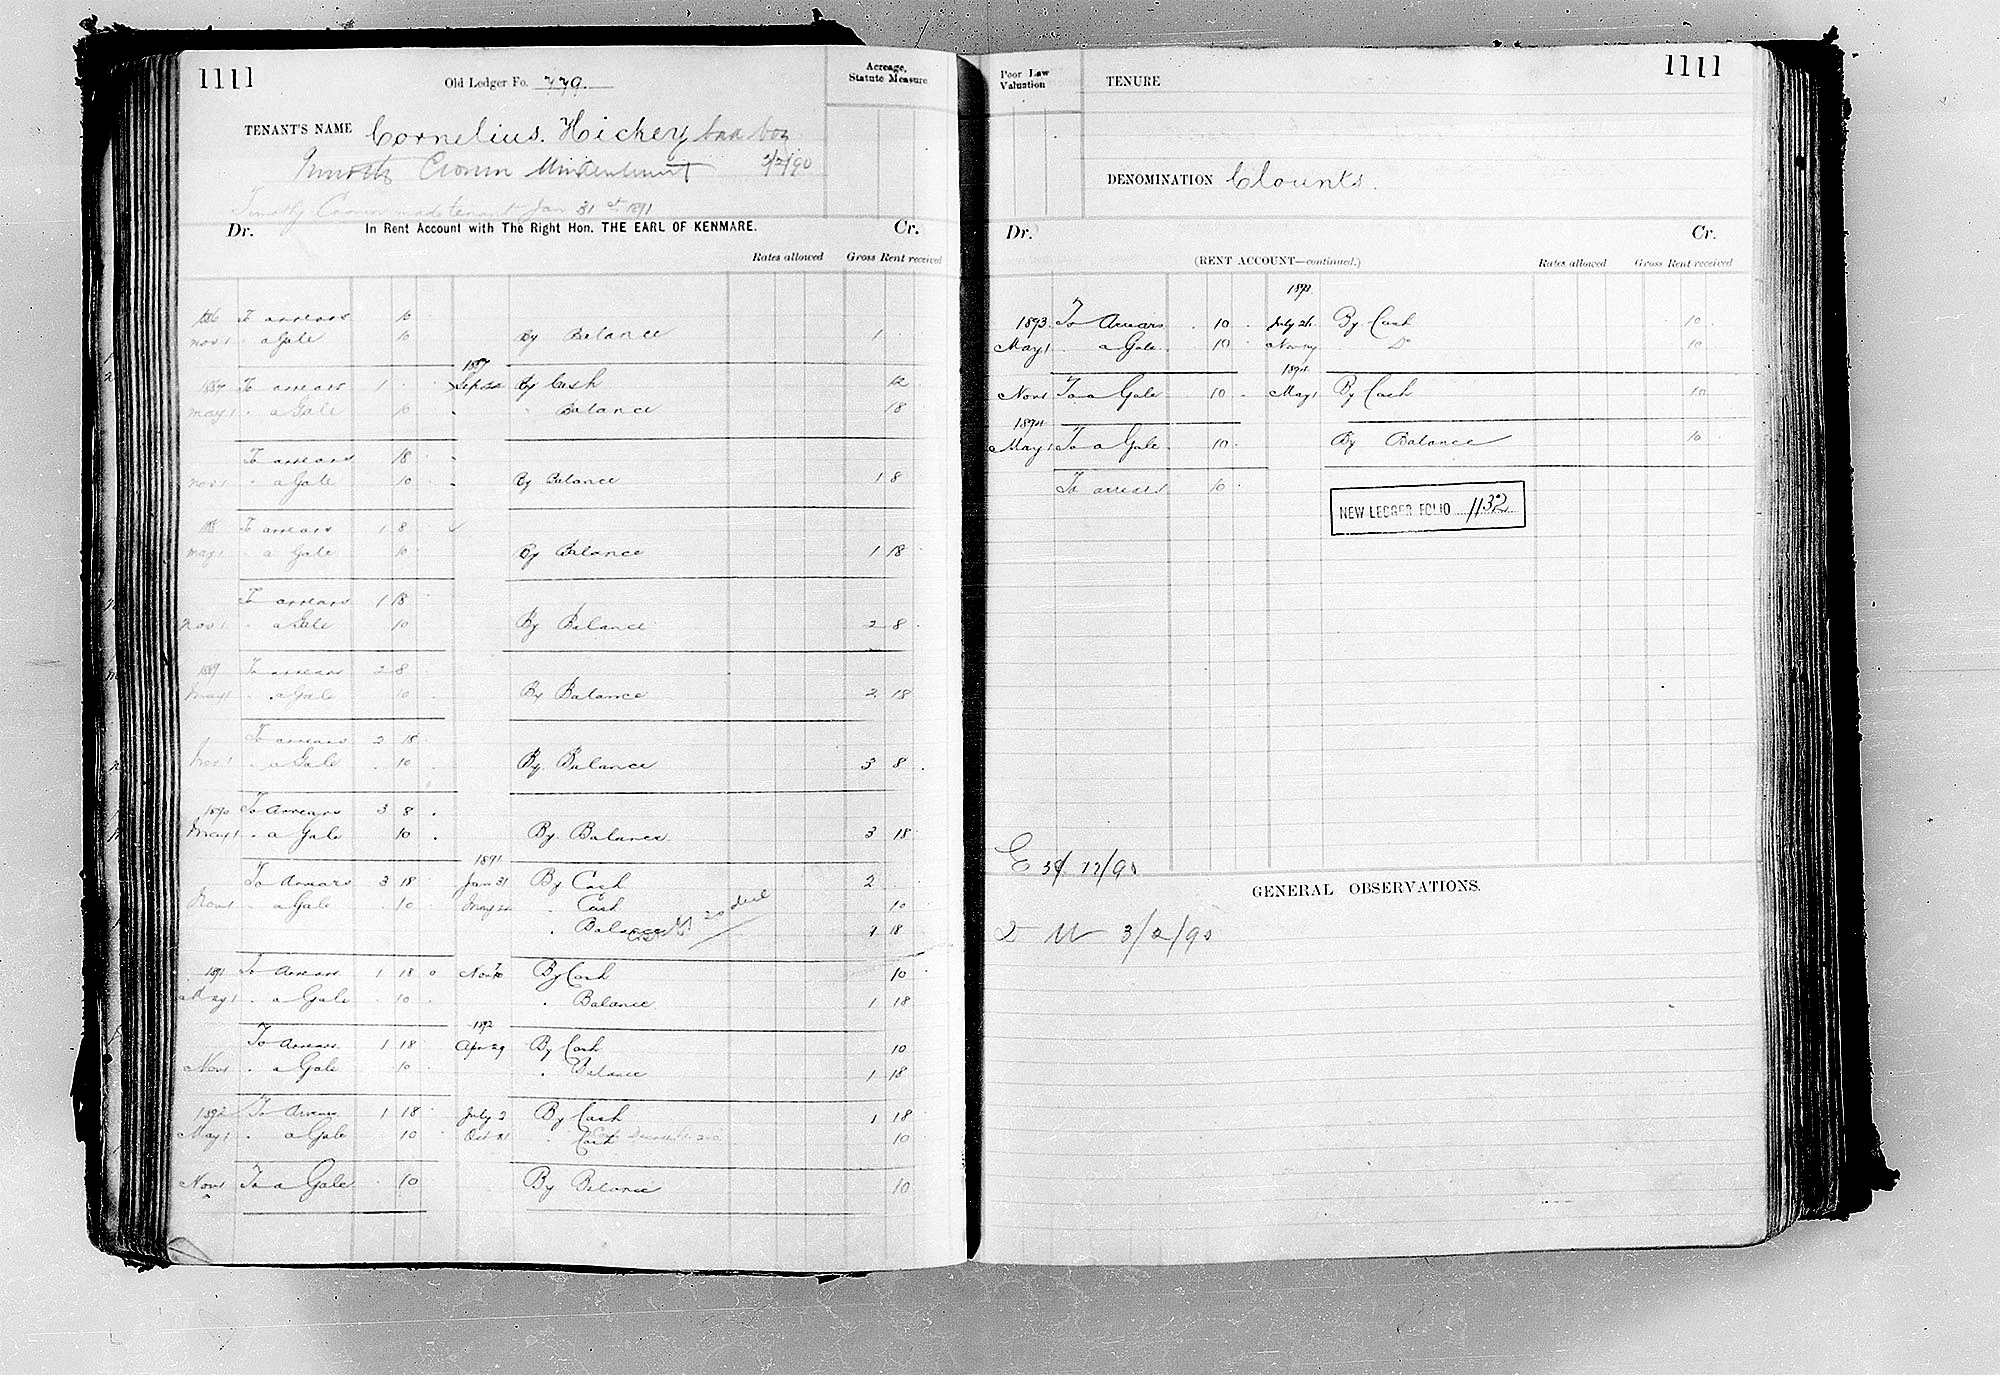 1111
Old Ledger Fo. 779.
Acreage,
Statute Measure
TENANT'S NAME Cornelius. Hickey
Cronin 3/2/90
Timothy Cronin made tenant Jan 31st 1891
Dr. In Rent Account with The Right Hon. THE EARL OF KENMARE. Cr.
Rates allowed Gross Rent received
1886 To arrears 10
Nov 1 " a Gale 10 By Balance 1
1887
1887 To arrears 1 Sep 22 By Cash 12
May 1 " a Gale 10 " Balance 18
To arrears 18
Nov 1 " a Gale 10 By Balance 1 8
1888 To arrears 1 8
May 1 " a Gale 10 By Balance 1 18
To arrears 1 18
Nov 1 a Gale 10 By Balance 2 8
1889 To arrears 2 8
May 1 " a Gale 10 By Balance 2 18
To arrears 2 18
Nov 1 " a Gale 10 By. Balance 3 8
1890 To Arrears 3 8
May 1 " a Gale 10 By. Balance 3 18
1891
To Arrears 3 18 Jan 31 By Cash 2
Nov 1 " a Gale 10 May 22 " Cash 10
" Balance 1 18
1891 To Arrears 1 18 0 Nov 10 By Cash 10
May 1 " a Gale 10 " Balance 1 18
1892
To Arrears 1 18 Apr 29 By Cash 10
Nov 1 " a Gale 10 " Balance 1 18
1892 To Arrears 1 18 July 2 By Cash 1 18
May 1 " a Gale 10 Oct 21 " Cash 10
Nov 1 To a Gale 10 By Balance 10
1111
Poor Law
Valuation
TENURE
DENOMINATION Clounts.
Dr. Cr.
(RENT ACCOUNT—continued.) Rates allowed Gross Rent received
1893
1893 To Arrears 10 July 21 By Cash 10
May 1 " a Gale 10 Nov Do 10
1894
Nov 1 To a Gale 10 May 1 By Cash 10
1894
May 1 To a Gale 10 By Balance 10
To arrears 10
NEW LEDGER FOLIO 1132
GENERAL OBSERVATIONS.
3/2/90